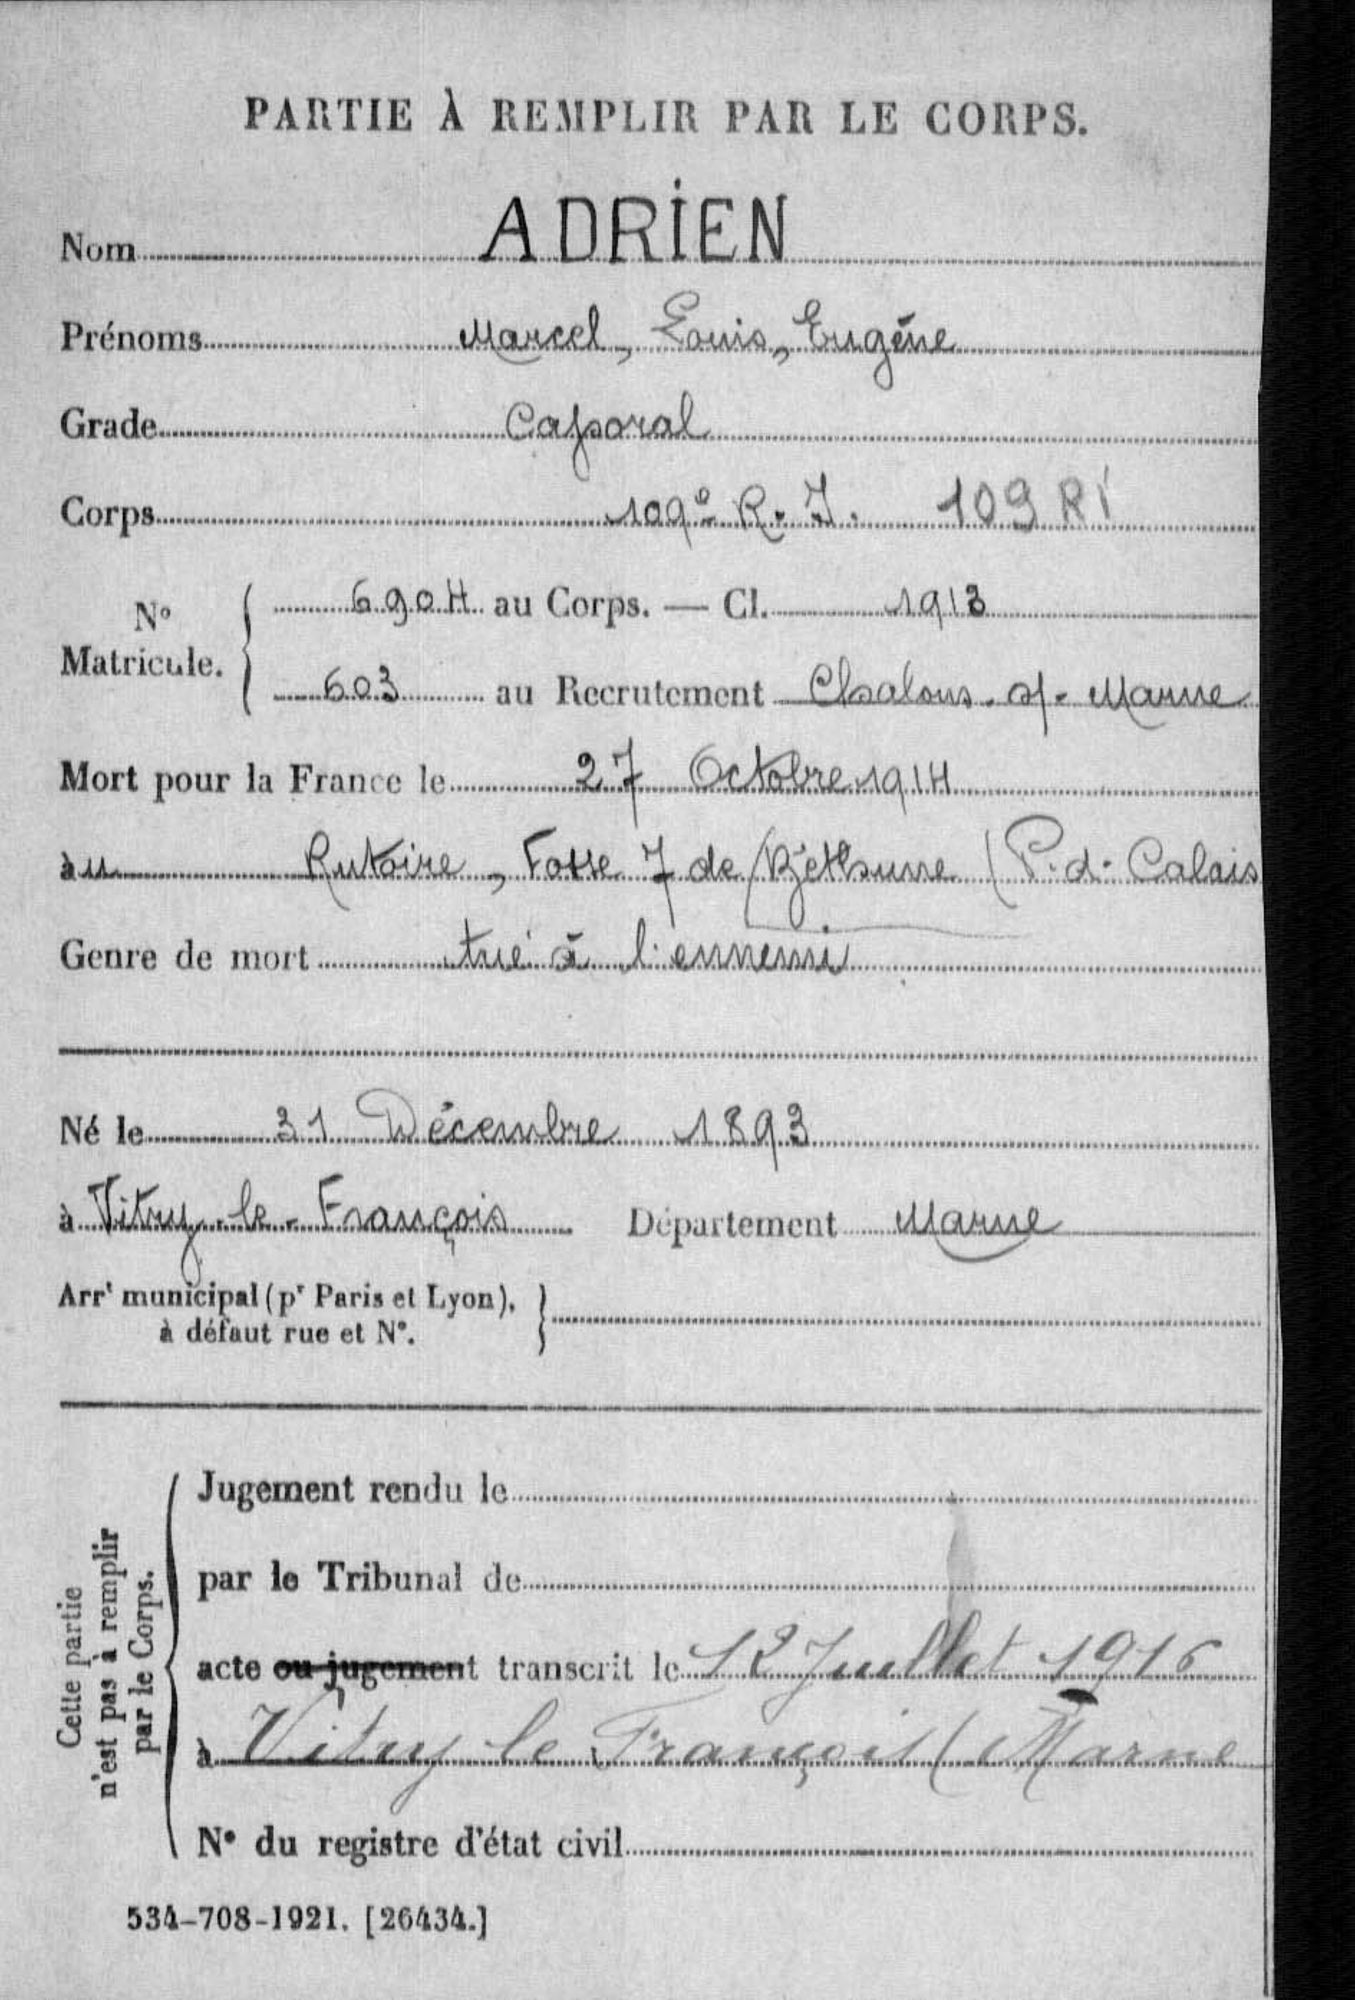 PARTIE À REMPLIR PAR LE CORPS.
Nom ADRIEN
Prénoms Marcel, Louis, Eugène
Grade Caporal
Corps 109e R. I. 109 RI
N° Matricule. { 6904 au Corps. — Cl. 1913
603 au Recrutement Chalons. s/. Marne
Mort pour la France le 27 Octobre 1914
au Rutoire, Fosse 7 de Béthune (P. d. Calais
Genre de mort tué à l'ennemi
Né le 31 Décembre 1893
à Vitry-le-François Département Marne
Arrt municipal (pr Paris et Lyon),
à défaut rue et N°.
Cette partie
n'est pas à remplir
par le Corps.
Jugement rendu le
par le Tribunal de
acte ou jugement transcrit le 12 Juillet 1916
à Vitry le François (Marne
N° du registre d'état civil
534-708-1921. [26434.]